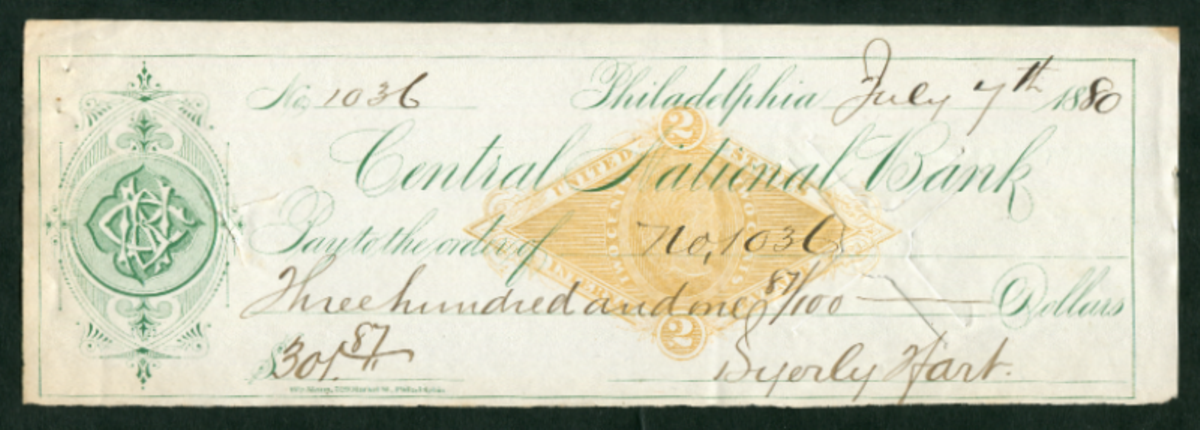 No. 1036 Philadelphia July 7th 1880
2
UNITED STATES
Central National Bank
Pay to the order of No, 1036
Three hundred and one 87/100 Dollars
2
$301.87
Byerly Hart.